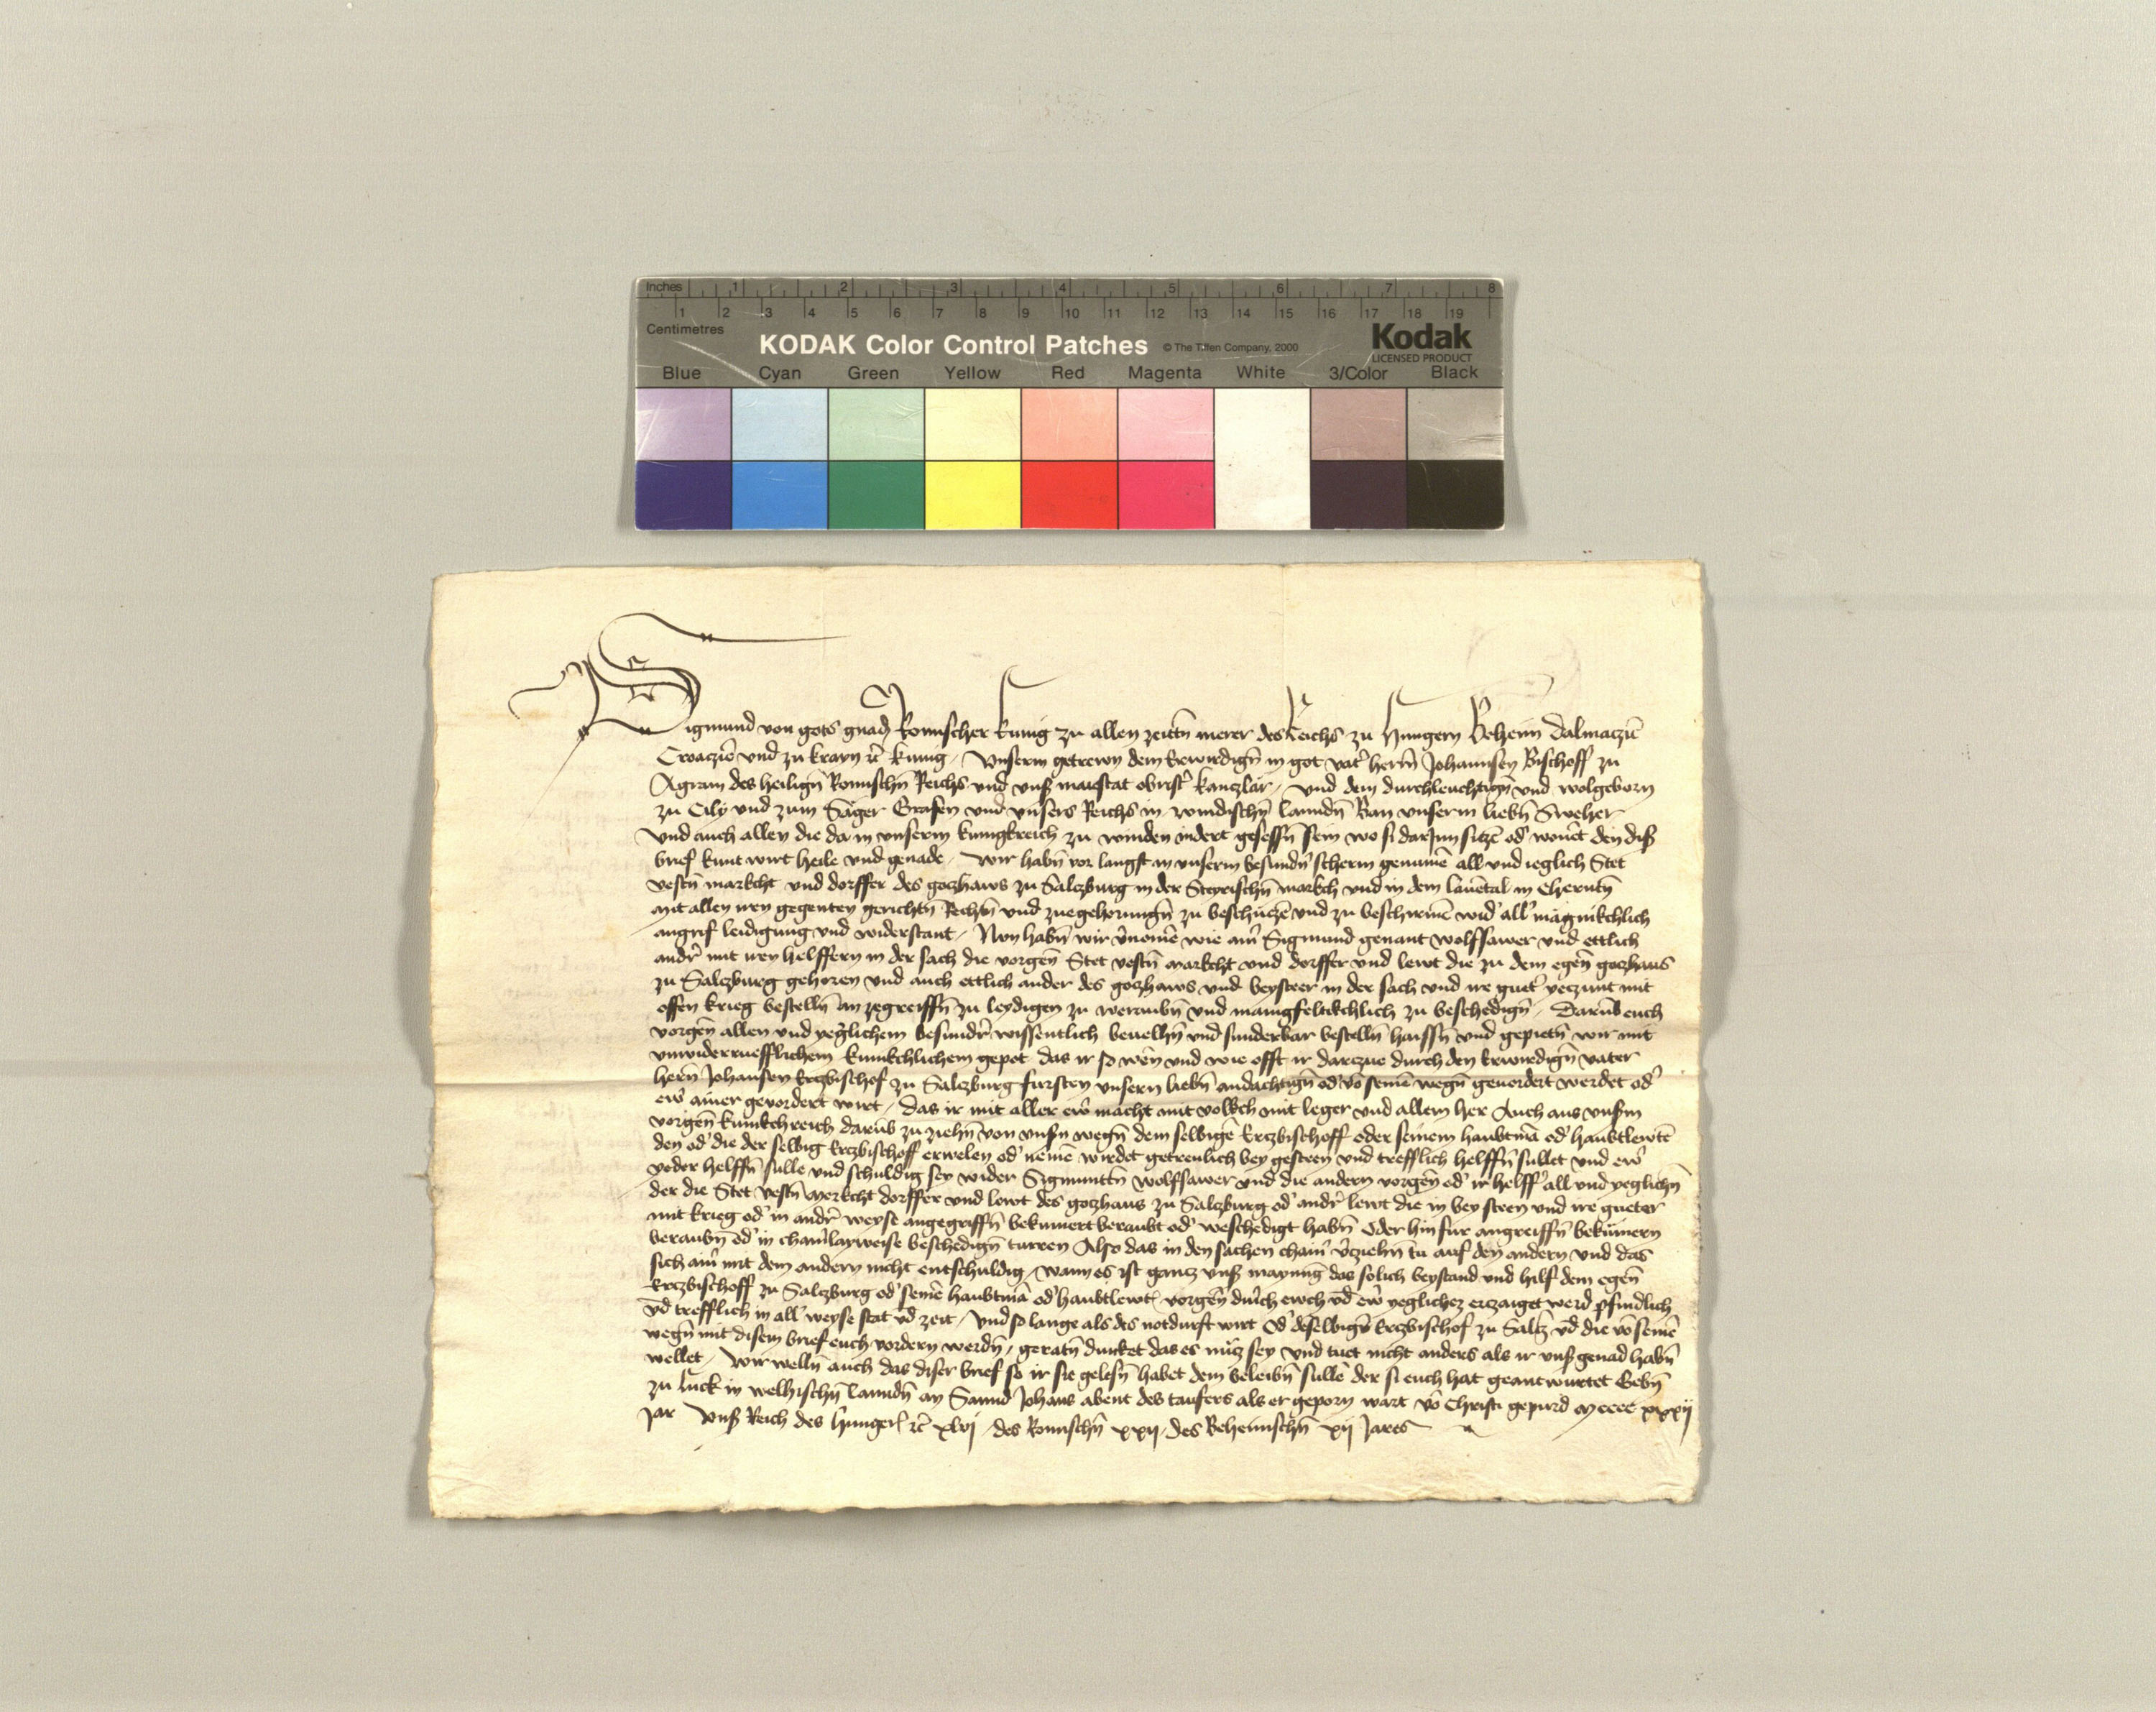 Inches 1 2 3 4 5 6 7 8
1 2 3 4 5 6 7 8 9 10 11 12 13 14 15 16 17 18 19
Centimetres
KODAK Color Control Patches © The Tiffen Company, 2000 Kodak
LICENSED PRODUCT
Blue Cyan Green Yellow Red Magenta White 3/Color Black
Sigmund von gots gnadn Romischer kunig zu allen zeitn̄ merer des Reichs zu Hungern Beheim Dalmaczīe
Croaczīe und zu krayn ꝛc̄ kunig / Unserm getrewn dem Erwirdign̄ in got vat' herrn̄ Johannsen Bischoff zu
Agram des heilign̄ Romischn̄ Reichs und unß maiestat obrist' kanczlar / und dem durchleuchtign̄ und wolgeborn
zu Cily und zum Sager Grafen und unsers Reichs in windischn̄ lanndn̄ Ban unserm liebn̄ Sweher
und auch allen die da in unserm kunigkreich zu winden indert gesessn̄ sein wo si darJnn sitzē od' wonēt den diß
brief kunt wirt heile und genade / Wir habn̄ vor langst in unserm besundn̄ scherm genumē all und ieglich Stet
vestn̄ markcht und dorffer des gozhaws zu Salczburg in der Steyrischn̄ markch und in dem lavētal in Cherntn̄
mit allen iren gegenten gerichtn̄ Rechtn̄ und zuegehorungn̄ zu beschuczē und zu beschirmē wid' all' mänikchlich
angrif leidigung und widerstant / Nun habn̄ wir v̄nomē wie ain' Sigmund genant wolfsawer und ettlich
andr' mit iren helffern in der sach die vorgen̄ Stet vestn̄ markcht und dorffer und lewt die zu dem egen̄ gozhaws
zu Salczburg gehoren und auch ettlich ander des gozhaws und beysteer in der sach und ire guet' yeczunt mit
offen krieg bestelln̄ an zegreiffn̄ zu leydigen zu weraubn̄ und manigfeltikchlich zu beschedign̄ / Darūb euch
vorgen̄ allen und yeglichem besundr' wissentlich bevelhn̄ und sunderbar bestelln̄ haissn̄ und gepietn̄ wir mit
unwiderruefflichem kunikchlichem gepot das ir so wen̄ und wie offt ir darczue durch den Erwirdign̄ vater
hern̄ Johansen Erczbischof zu Salczburg fursten unsern liebn̄ andachtign̄ od' vō seinē wegn̄ gevordert werdet od'
ew' ainer gevordert wirt / das ir mit aller ew' macht mit volkch mit leger und allem her Auch aus unßm
vorgen̄ kunikchreich darūb zu ziehn̄ von unsn̄ wegn̄ dem selbigē Erczbischoff oder seinem haubtmā od' haubtlewtē
den od' die der selbig Erczbischoff erwelen od' nemē wirdet getreulich bey gesteen und trefflich helffn̄ sullet und ew'
yeder helffn̄ sulle und schuldig sey wider Sigmuntn̄ wolfsawer und die andern vorgen̄ od' ir helff' all und yeglichn̄
der die Stet vestn̄ Merkcht dorffer und lewt des gozhaus zu Salczburg od' andr' lewt die in bey steen und ire gueter
mit krieg od' in andr' weyse angegriffn̄ bekumert beraubt od' weschedigt habn̄ Oder hinfur angreiffn̄ bekumern
beraubn̄ od' in chainlayweise beschedign̄ turren Also das in den sachen chain' v̄cziehn̄ tu auf den andern und das
sich ain' mit dem andern nicht entschuldig / wann es ist gancz unß maynung das solich beystand und hilf dem egen̄
Erczbischoff zu Salczburg od' seinē haubtmā od' haubtlewt vorgen̄ durch ewch v̄d ew' yeglichez erczaiget werd
v̄d trefflich in all' weyse stat v̄d zeit / und so lange als des notdurft wirt Od' deselbign̄ Erczbischof zu Salcz v̄d die vō seinē
wegn̄ mit disem brief euch vordern werdn̄ / geratn̄ dunket das es nucz sey und tuet nicht anders als ir unß genad habn̄
wellet / Wir welln̄ auch das diser brief so ir sie gelesn̄ habet dem beleibn̄ sulle der si euch hat geantwurtet Gebn̄
zu Luck in welhischn̄ lanndn̄ an Sannd Johans abent des taufers als er geporn wart vō Christi gepurd M cccc xxxij
Jar Unß Reich des hunger' ꝛc̄ xlvj / des Romischn̄ xxij / des Behemischn̄ xij Jares